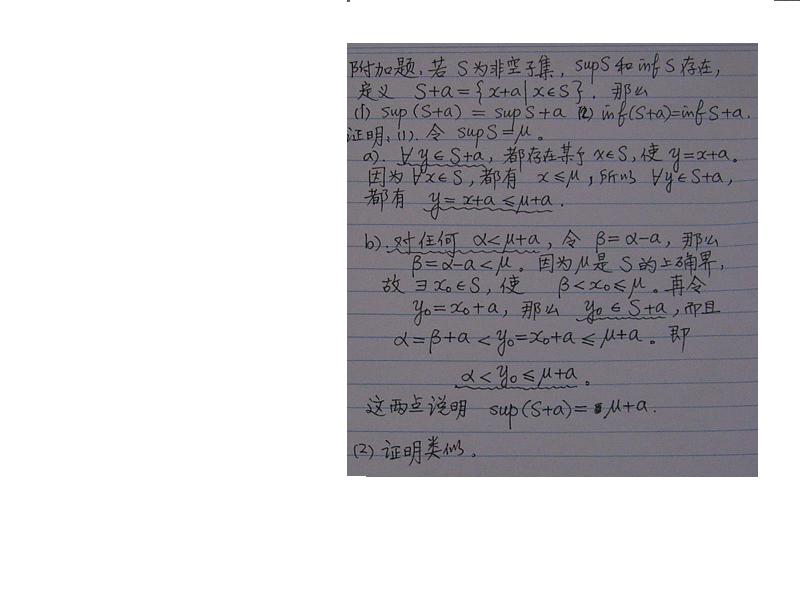 附加题. 若 S 为非空子集, supS 和 inf S 存在,
定义 S+a={x+a|x∈S}. 那么
(1) sup (S+a) = supS+a (2) inf(S+a)=inf S+a.
证明: (1). 令 supS=μ。
a). ∀y∈S+a, 都存在某个 x∈S, 使 y=x+a。
因为 ∀x∈S, 都有 x≤μ, 所以 ∀y∈S+a,
都有 y=x+a≤μ+a.
b). 对任何 α<μ+a, 令 β=α-a, 那么
β=α-a<μ。因为 μ是 S 的上确界,
故 ∃x₀∈S, 使 β<x₀≤μ。再令
y₀=x₀+a, 那么 y₀∈S+a, 而且
α=β+a<y₀=x₀+a≤μ+a。即
α<y₀≤μ+a。
这两点说明 sup(S+a)=μ+a.
(2) 证明类似。